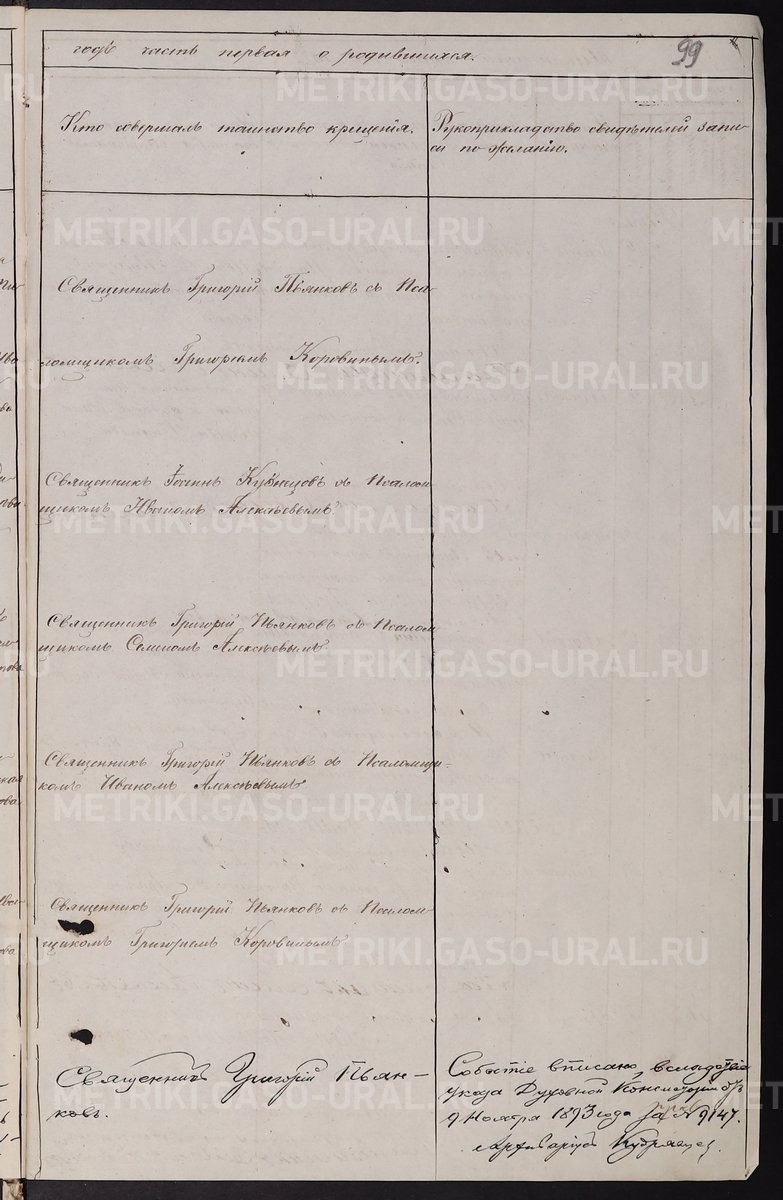 годъ часть первая о родившихся.
99
Кто совершалъ таинство крещенія.
Рукоприкладство свидѣтелей запи-
си по желанію.
Священникъ Григорій Пьянковъ съ Пса-
ломщикомъ Григоріемъ Коровинымъ.
Священникъ Іоаннъ Кузнецовъ съ Псалом-
щикомъ Иваномъ Алексѣевымъ
Священникъ Григорій Пьянковъ съ Псалом
щикомъ Семеномъ Алексѣевымъ
Священникъ Григорій Пьянковъ съ Псаломщи-
комъ Иваномъ Алексѣевымъ
Священникъ Григорій Пьянковъ съ Псалом-
щикомъ Григоріемъ Коровинымъ
Священникъ Григорій Пьян-
ковъ.
Событіе вписано вслѣдствіе
указа Духовной Консисторіи отъ
9 Ноября 1893 года за № 9147.
Архиваріусъ
METRIKI.GASO-URAL.RU